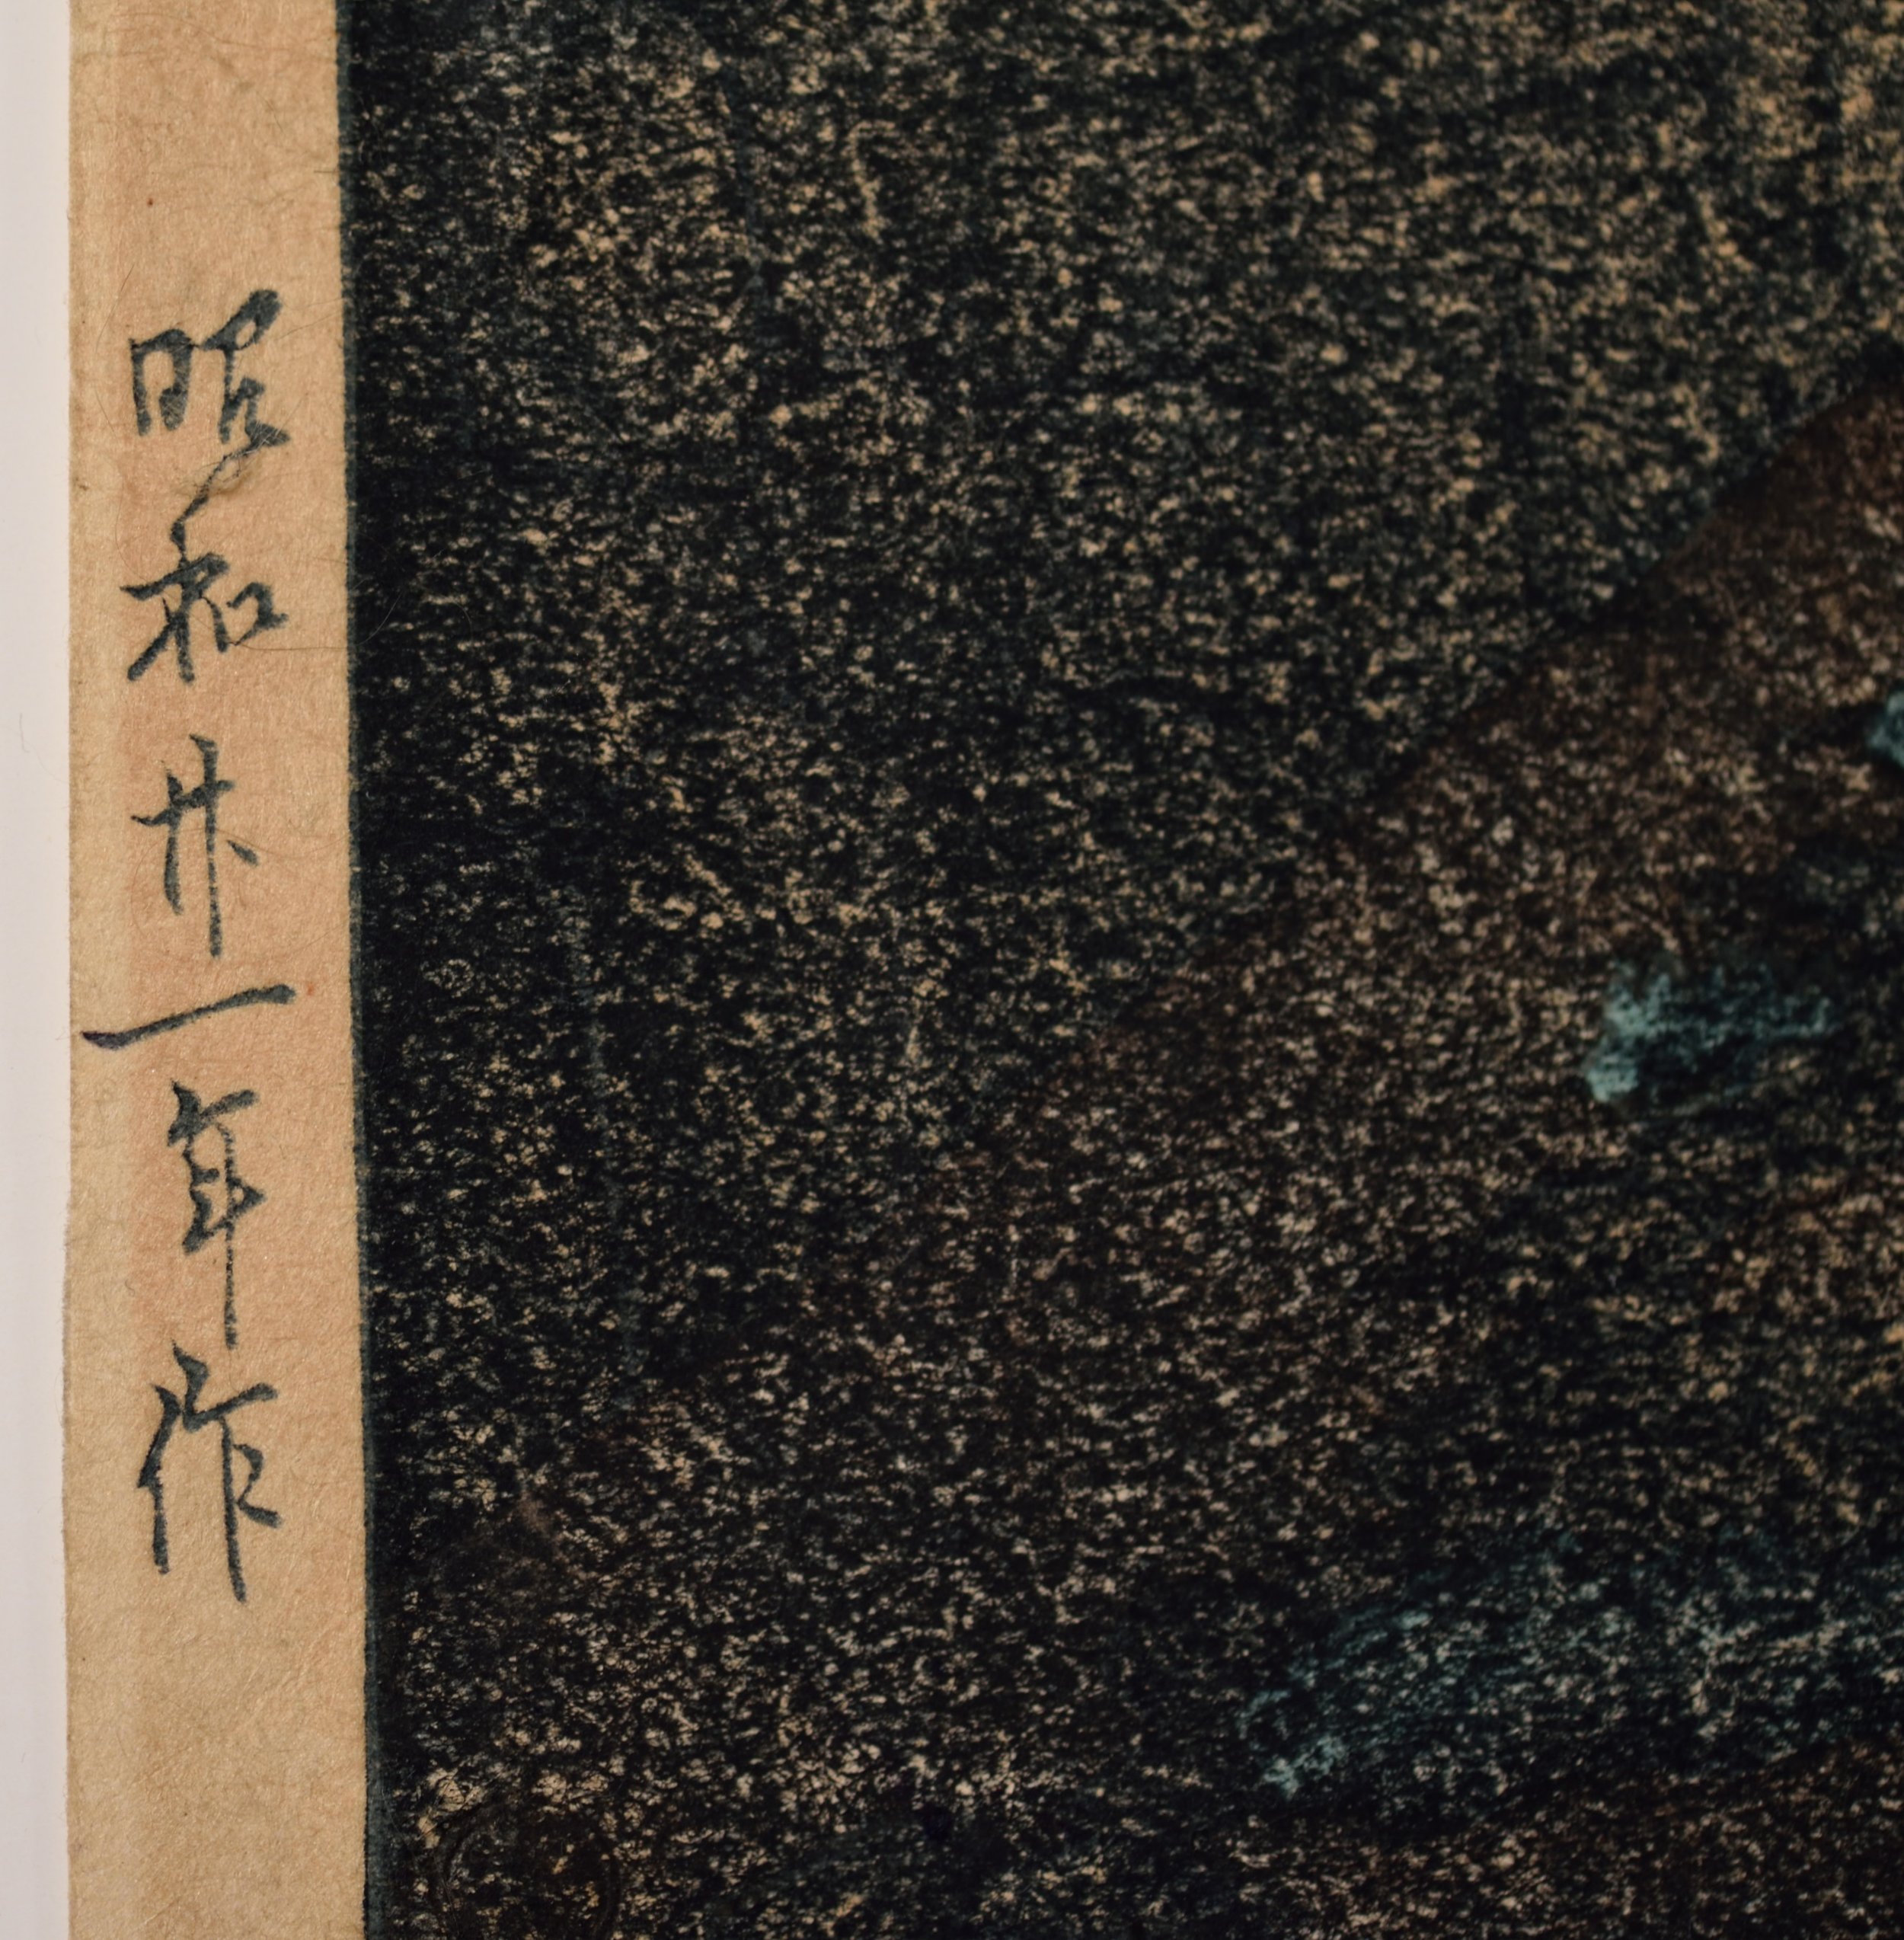 昭和廿一年作